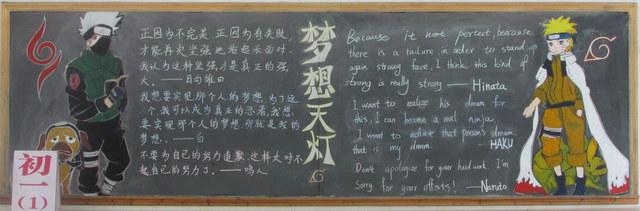 正因为不完美,正因为有失败,
才能再次坚强地站起来面对.
我认为这种坚强才是真正的强
大。——日向雏田
我想要实现那个人的梦想,为了这
个,我可以成为真正的忍者,我想
要实现那个人的梦想,那就是我的
梦想。——白
不要为自己的努力道歉,这样太对不
起自己的努力了。——鸣人
梦想天灯
Because it not perfect, because
there is a failure in order to stand up
again strong face. I think this kind of
strong is really strong —— Hinata
I want to realize his dream for
this, I can become a real ninja
I want to achieve that person's dream.
that is my dream. —HAKU
Don't apologize for your hard work. I'm
Sorry for your efforts! —Naruto
初一
(1)